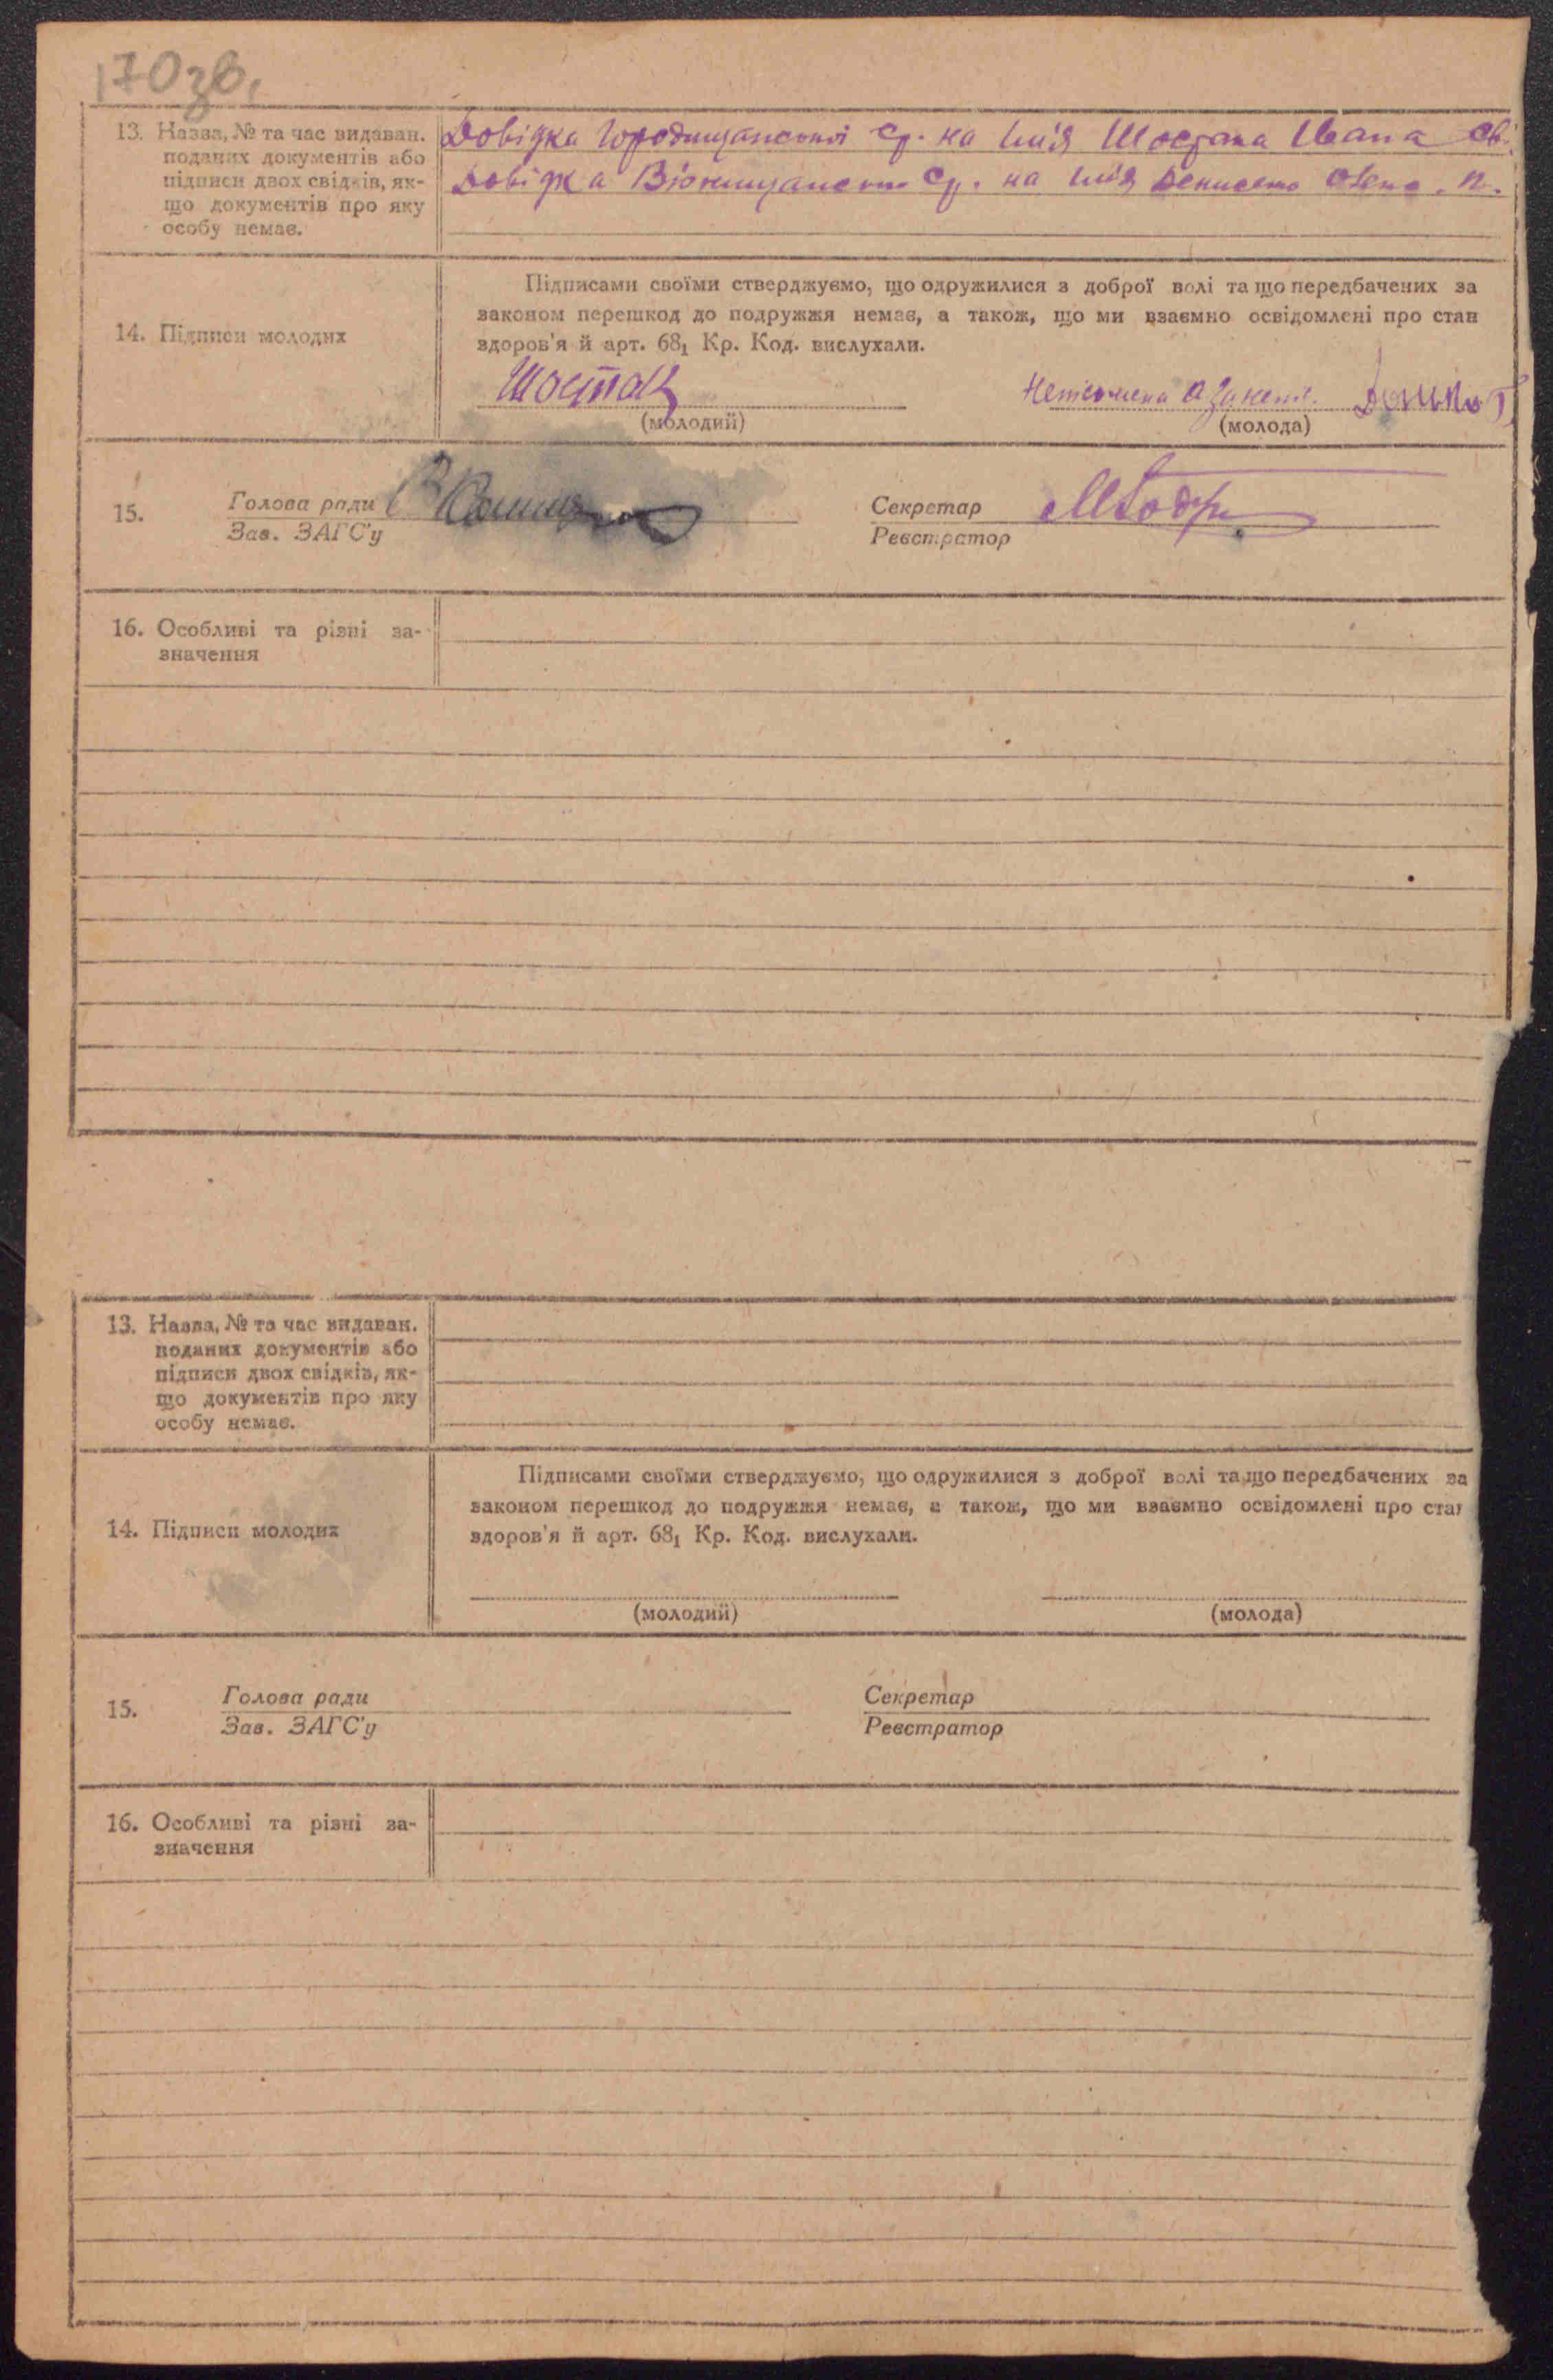 170 зв.
13. Назва, № та час видаван.
поданих документів або
підписи двох свідків, як-
що документів про яку
особу немає.
Довідка Городищанської ср. на імʼя Шостака Івана Ов.
Довідка ср. на імʼя Денисенко Олена. П.
14. Підписи молодих
Підписами своїми стверджуємо, що одружилися з доброї волі та що передбачених за
законом перешкод до подружжя немає, а також, що ми взаємно освідомлені про стан
здоров'я й арт. 68₁ Кр. Код. вислухали.
Шостак
(молодий)
Неписьмена а за неї
(молода)
15.
Голова ради
Зав. ЗАГС'у
Секретар
Реєстратор
16. Особливі та різні за-
значення
13. Назва, № та час видаван.
поданих документів або
підписи двох свідків, як-
що документів про яку
особу немає.
14. Підписи молодих
Підписами своїми стверджуємо, що одружилися з доброї волі та що передбачених за
законом перешкод до подружжя немає, а також, що ми взаємно освідомлені про стан
здоров'я й арт. 68₁ Кр. Код. вислухали.
(молодий)
(молода)
15.
Голова ради
Зав. ЗАГС'у
Секретар
Реєстратор
16. Особливі та різні за-
значення